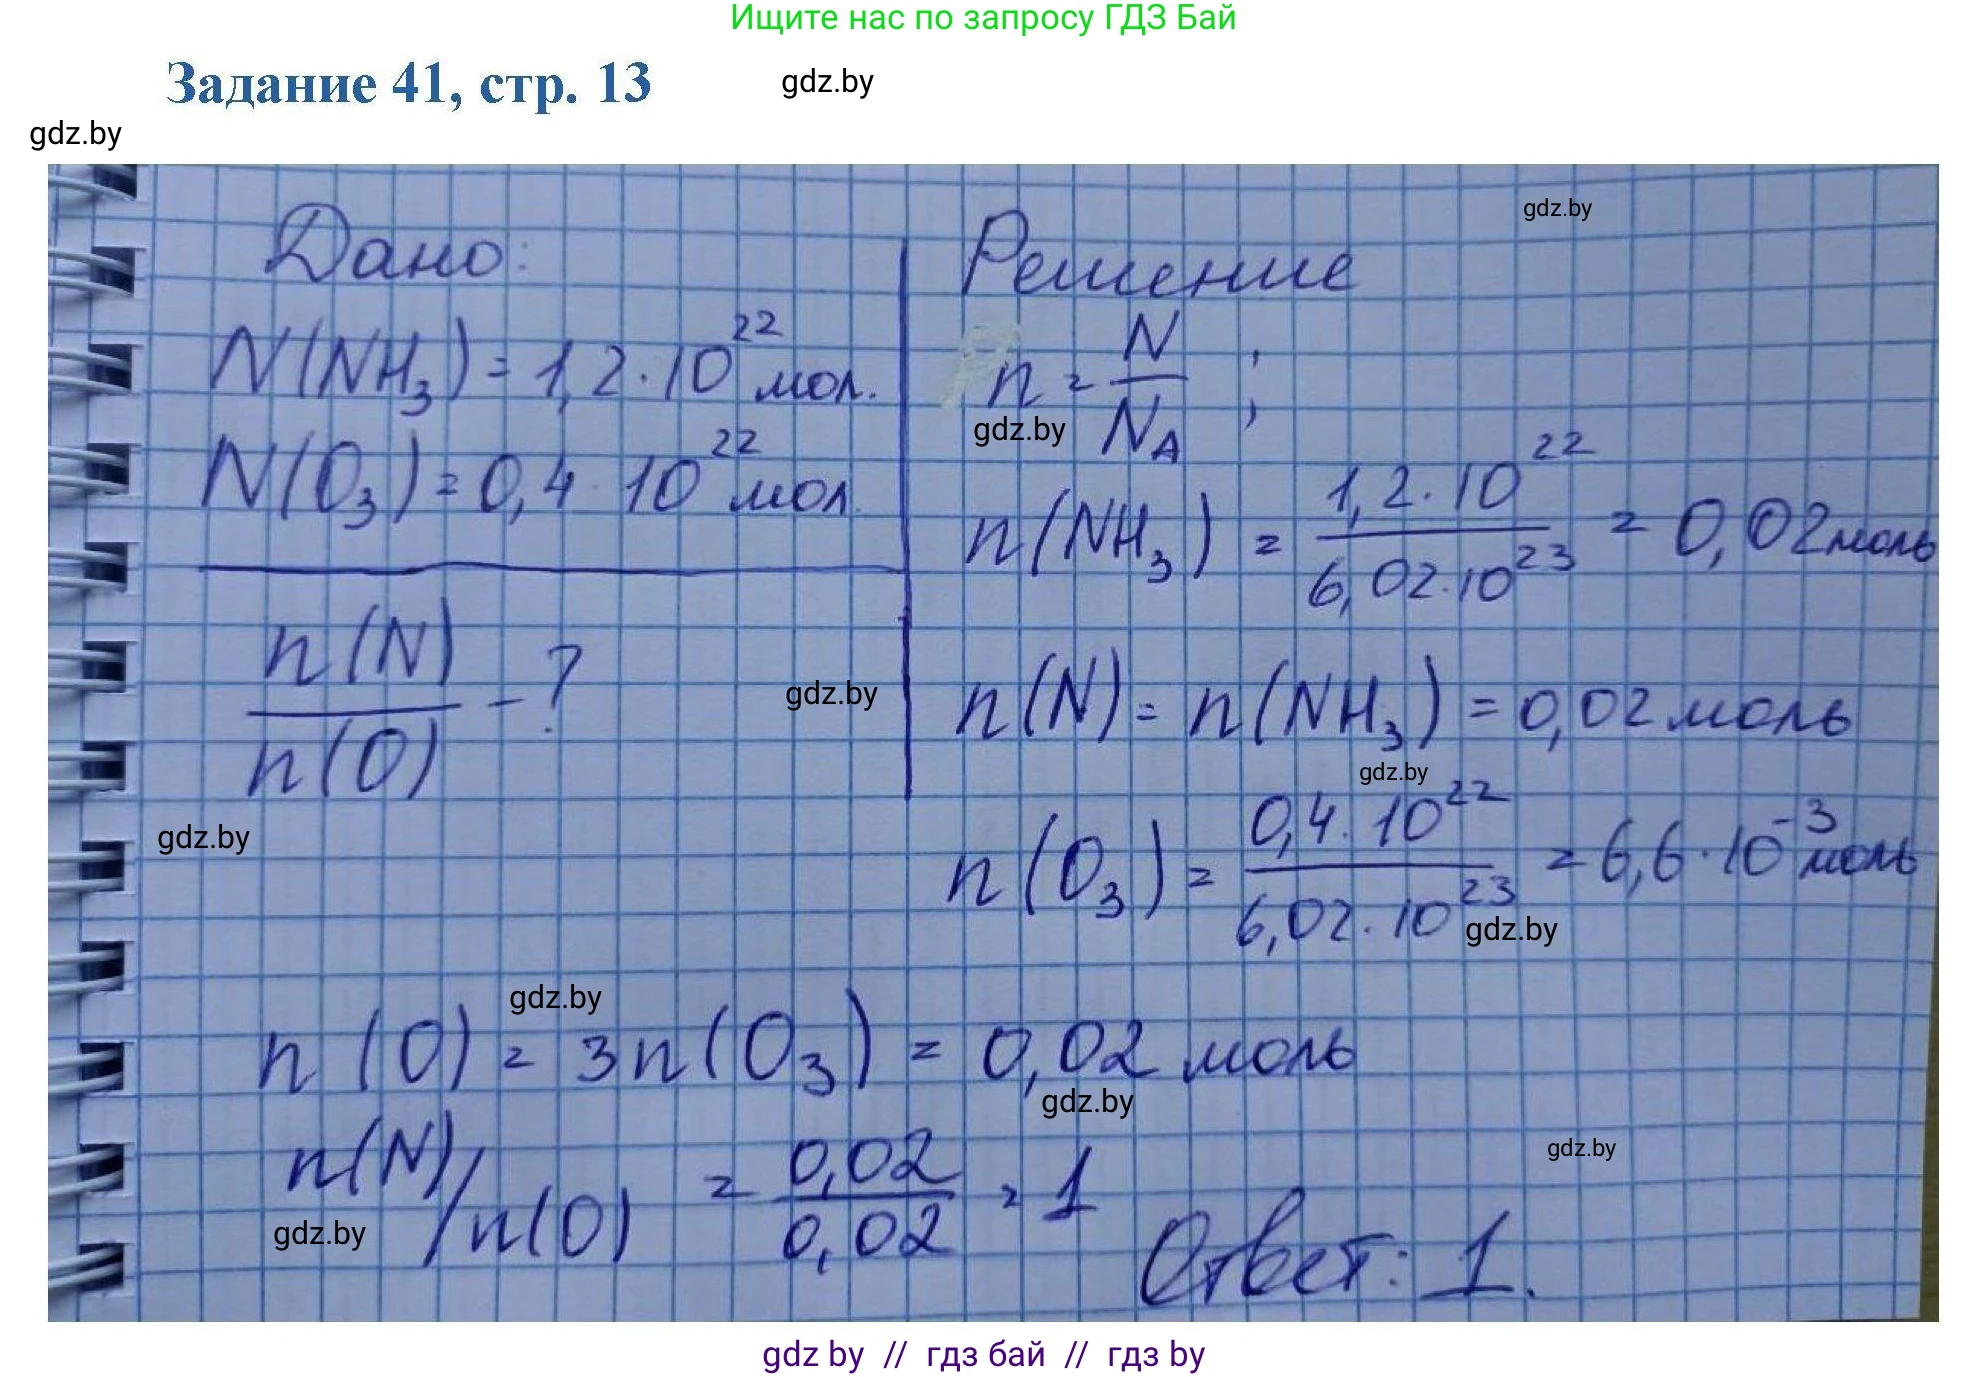 Ищите нас по запросу ГДЗ Бай
Задание 41, стр. 13
gdz.by
gdz.by
gdz.by
Дано:
N(NH₃) = 1,2 · 10²² мол.
N(O₃) = 0,4 · 10²² мол.
n(N)/n(O) - ?
gdz.by
gdz.by
Решение
n = N/N_A ;
gdz.by
n(NH₃) = 1,2 · 10²² / 6,02 · 10²³ = 0,02 моль
n(N) = n(NH₃) = 0,02 моль
gdz.by
n(O₃) = 0,4 · 10²² / 6,02 · 10²³ = 6,6 · 10⁻³ моль
gdz.by
gdz.by
n(O) = 3n(O₃) = 0,02 моль
gdz.by
n(N)/n(O) = 0,02/0,02 = 1
gdz.by
gdz.by
Ответ: 1.
gdz by // гдз бай // гдз by